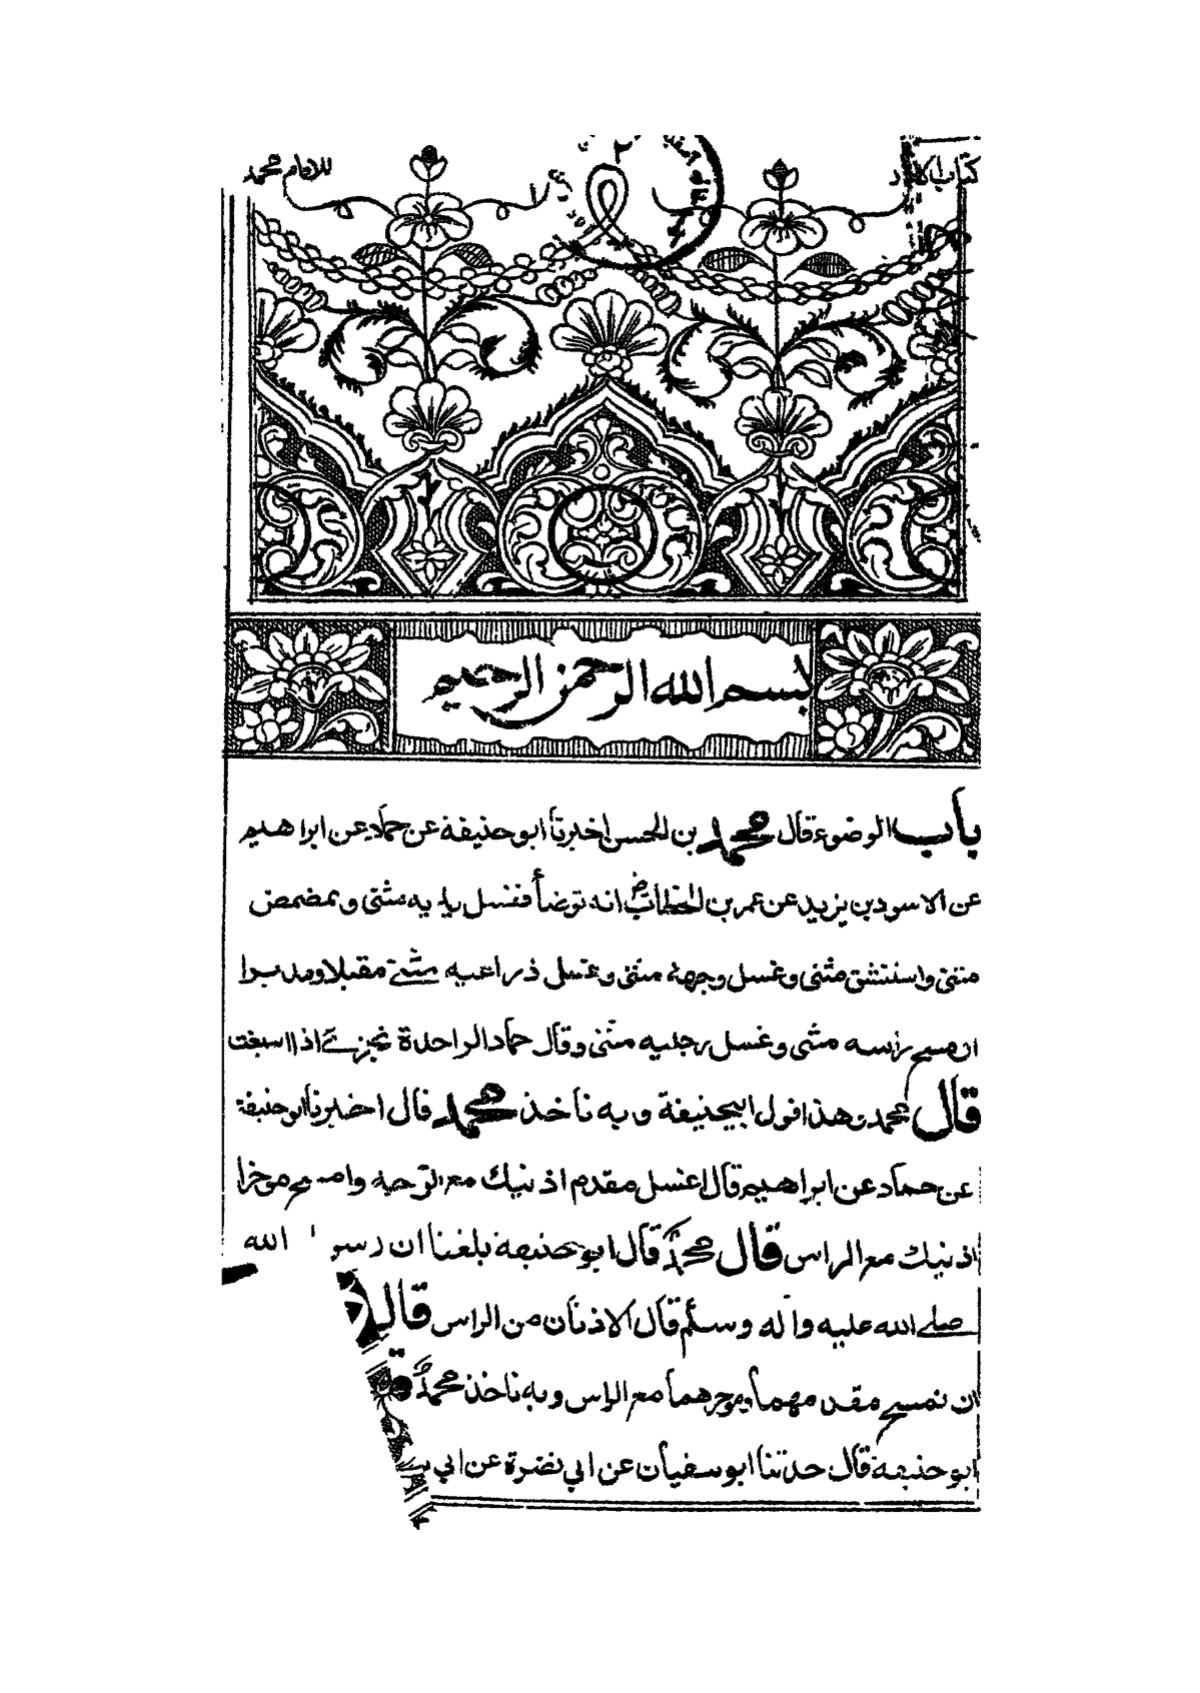 كتاب الآثار
٢
للامام محمد
بسم الله الرحمن الرحيم
باب الوضوء قال محمد بن الحسن اخبرنا ابو حنيفة عن حماد عن ابراهيم
عن الاسود بن يزيد عن عمر بن الخطاب رض انه توضأ فغسل يديه مثنى و تمضمض
مثنى واستنشق مثنى وغسل وجهه مثنى وغسل ذراعيه مثنى مقبلا ومدبرا
ومسح راسه مثنى وغسل رجليه مثنى وقال حماد الواحدة تجزئ اذا اسبغت
قال محمد وهذا قول ابيحنيفة وبه ناخذ محمد قال اخبرنا ابو حنيفة
عن حماد عن ابراهيم قال اغسل مقدم اذنيك مع الوجه وامسح موخر
اذنيك مع الراس قال محمد قال ابو حنيفة بلغنا ان رسو الله
صلى الله عليه وآله وسلم قال الاذنان من الراس قال
ان نمسح مقدمهما وموخرهما مع الراس وبه ناخذ محمد
ابو حنيفة قال حدثنا ابو سفيان عن ابي نضرة عن ابي